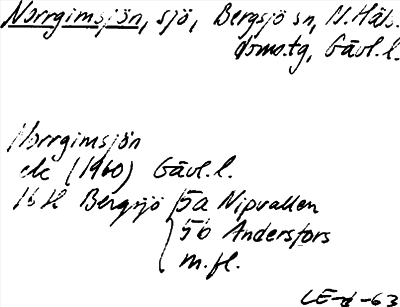 Norrgimsjön, sjö, Bergsjö sn, N. Häls.
doms.tg, Gävl. l.
Norrgimsjön
ek (1960) Gävl. l.
16 H Bergsjö 5a Nipvallen
5b Andersfors
m.fl.
CE-d-63